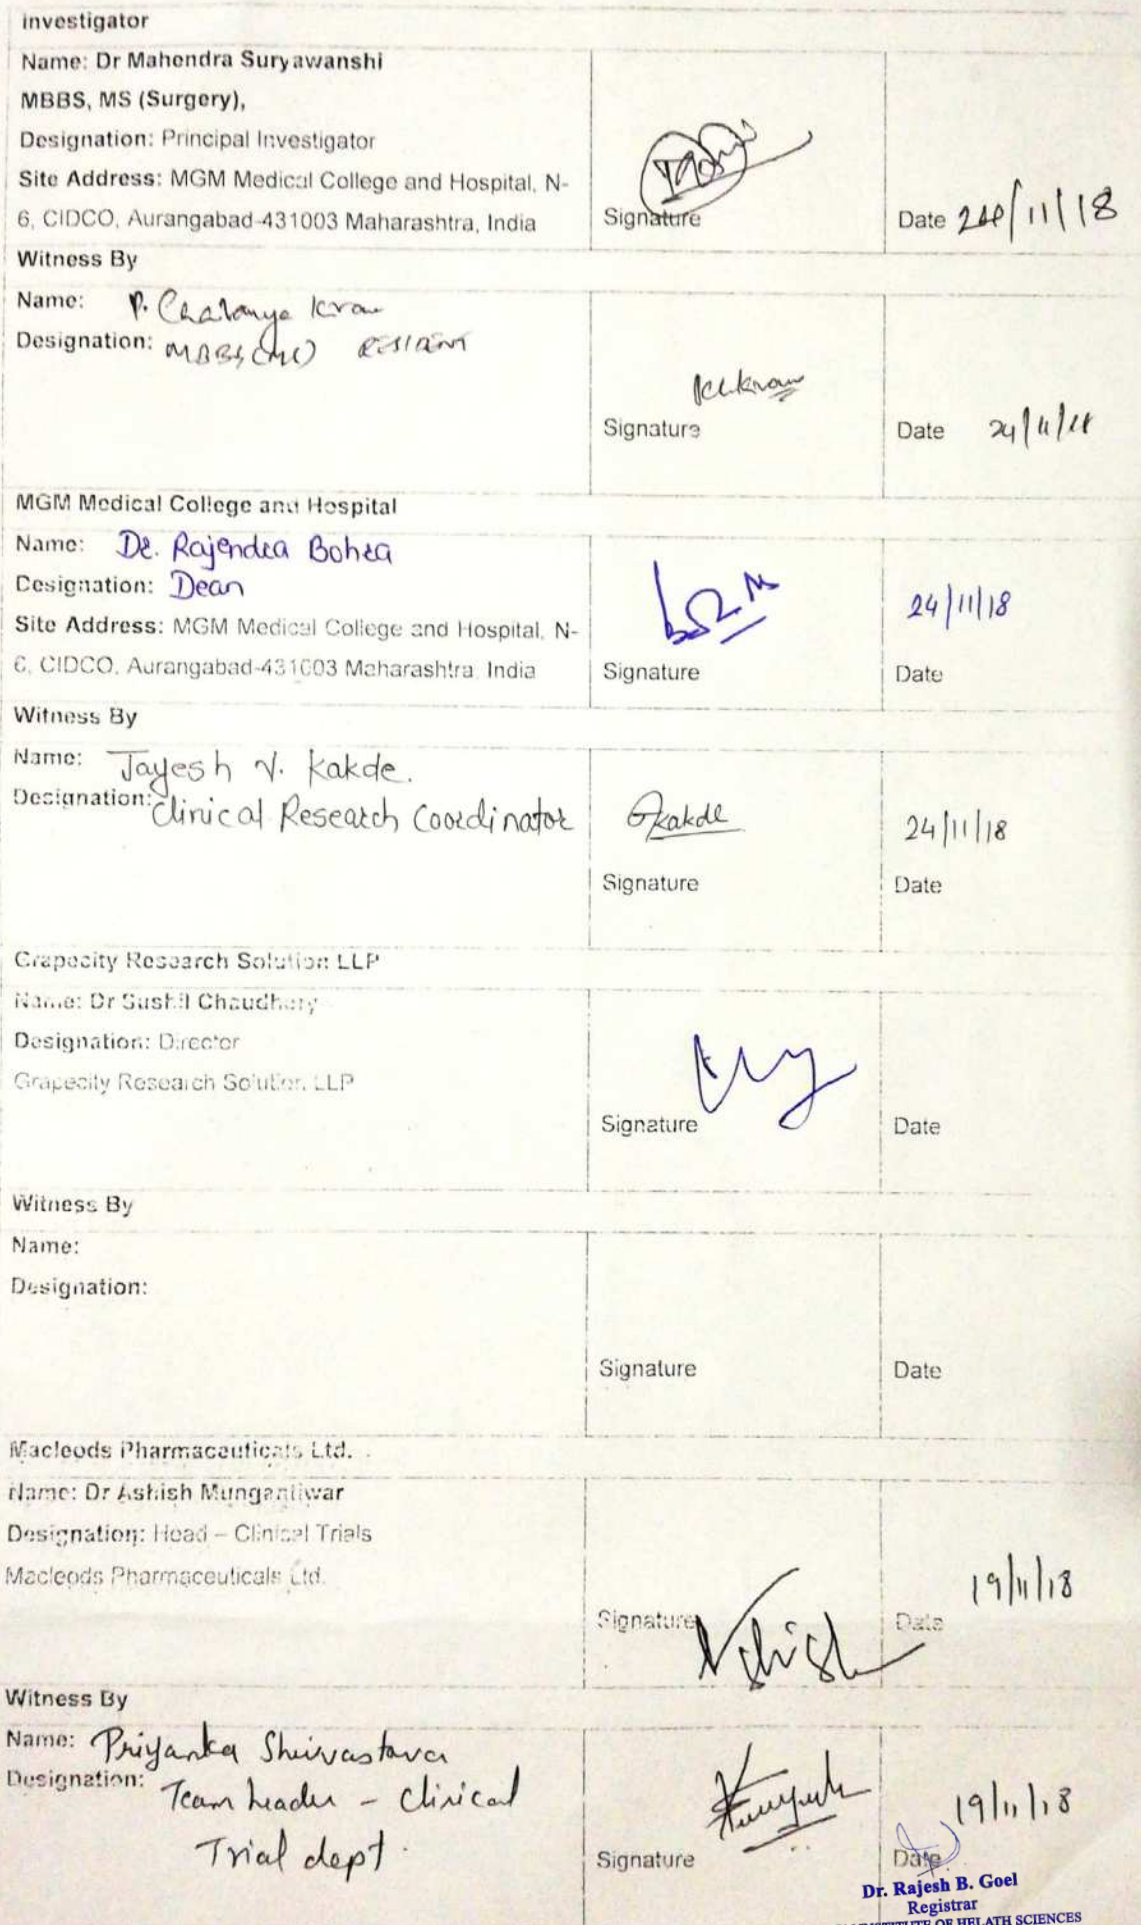 Investigator
Name: Dr Mahendra Suryawanshi
MBBS, MS (Surgery),
Designation: Principal Investigator
Site Address: MGM Medical College and Hospital, N-
6, CIDCO, Aurangabad-431003 Maharashtra, India
Signature
Date 24/11/18
Witness By
Name: P. Chaitanya Kiran
Designation: MBBS RESIDENT
Signature
Date 24/11/18
MGM Medical College and Hospital
Name: Dr. Rajendra Bohra
Designation: Dean
Site Address: MGM Medical College and Hospital, N-
6, CIDCO, Aurangabad-431003 Maharashtra, India
Signature
24/11/18
Date
Witness By
Name: Jayesh V. Kakde.
Designation: Clinical Research Coordinator
Kakde
Signature
24/11/18
Date
Grapecity Research Solution LLP
Name: Dr Sushil Chaudhary
Designation: Director
Grapecity Research Solution LLP
Signature
Date
Witness By
Name:
Designation:
Signature
Date
Macleods Pharmaceuticals Ltd.
Name: Dr Ashish Mungantiwar
Designation: Head – Clinical Trials
Macleods Pharmaceuticals Ltd.
Signature
Ashish
19/11/18
Date
Witness By
Name: Priyanka Shrivastava
Designation: Team Leader - Clinical
Trial dept.
Signature
19/11/18
Date
Dr. Rajesh B. Goel
Registrar
INSTITUTE OF HELATH SCIENCES